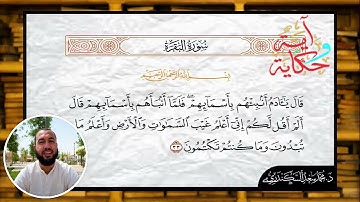 آية
و
حكاية
سُورَةُ البَقَرَةِ
بِسْمِ اللَّهِ الرَّحْمَٰنِ الرَّحِيمِ
قَالَ يَٰٓـَٔادَمُ أَنۢبِئْهُم بِأَسْمَآئِهِمْ ۖ فَلَمَّآ أَنۢبَأَهُم بِأَسْمَآئِهِمْ قَالَ
أَلَمْ أَقُل لَّكُمْ إِنِّىٓ أَعْلَمُ غَيْبَ ٱلسَّمَٰوَٰتِ وَٱلْأَرْضِ وَأَعْلَمُ مَا
تُبْدُونَ وَمَا كُنتُمْ تَكْتُمُونَ ٣٣